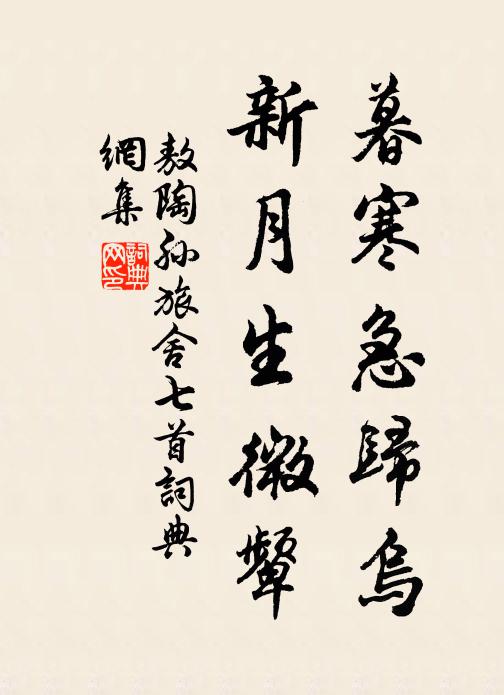 暮寒急歸烏
新月生微顰
敖陶孙旅舍七首詞典
網集
詞典網印